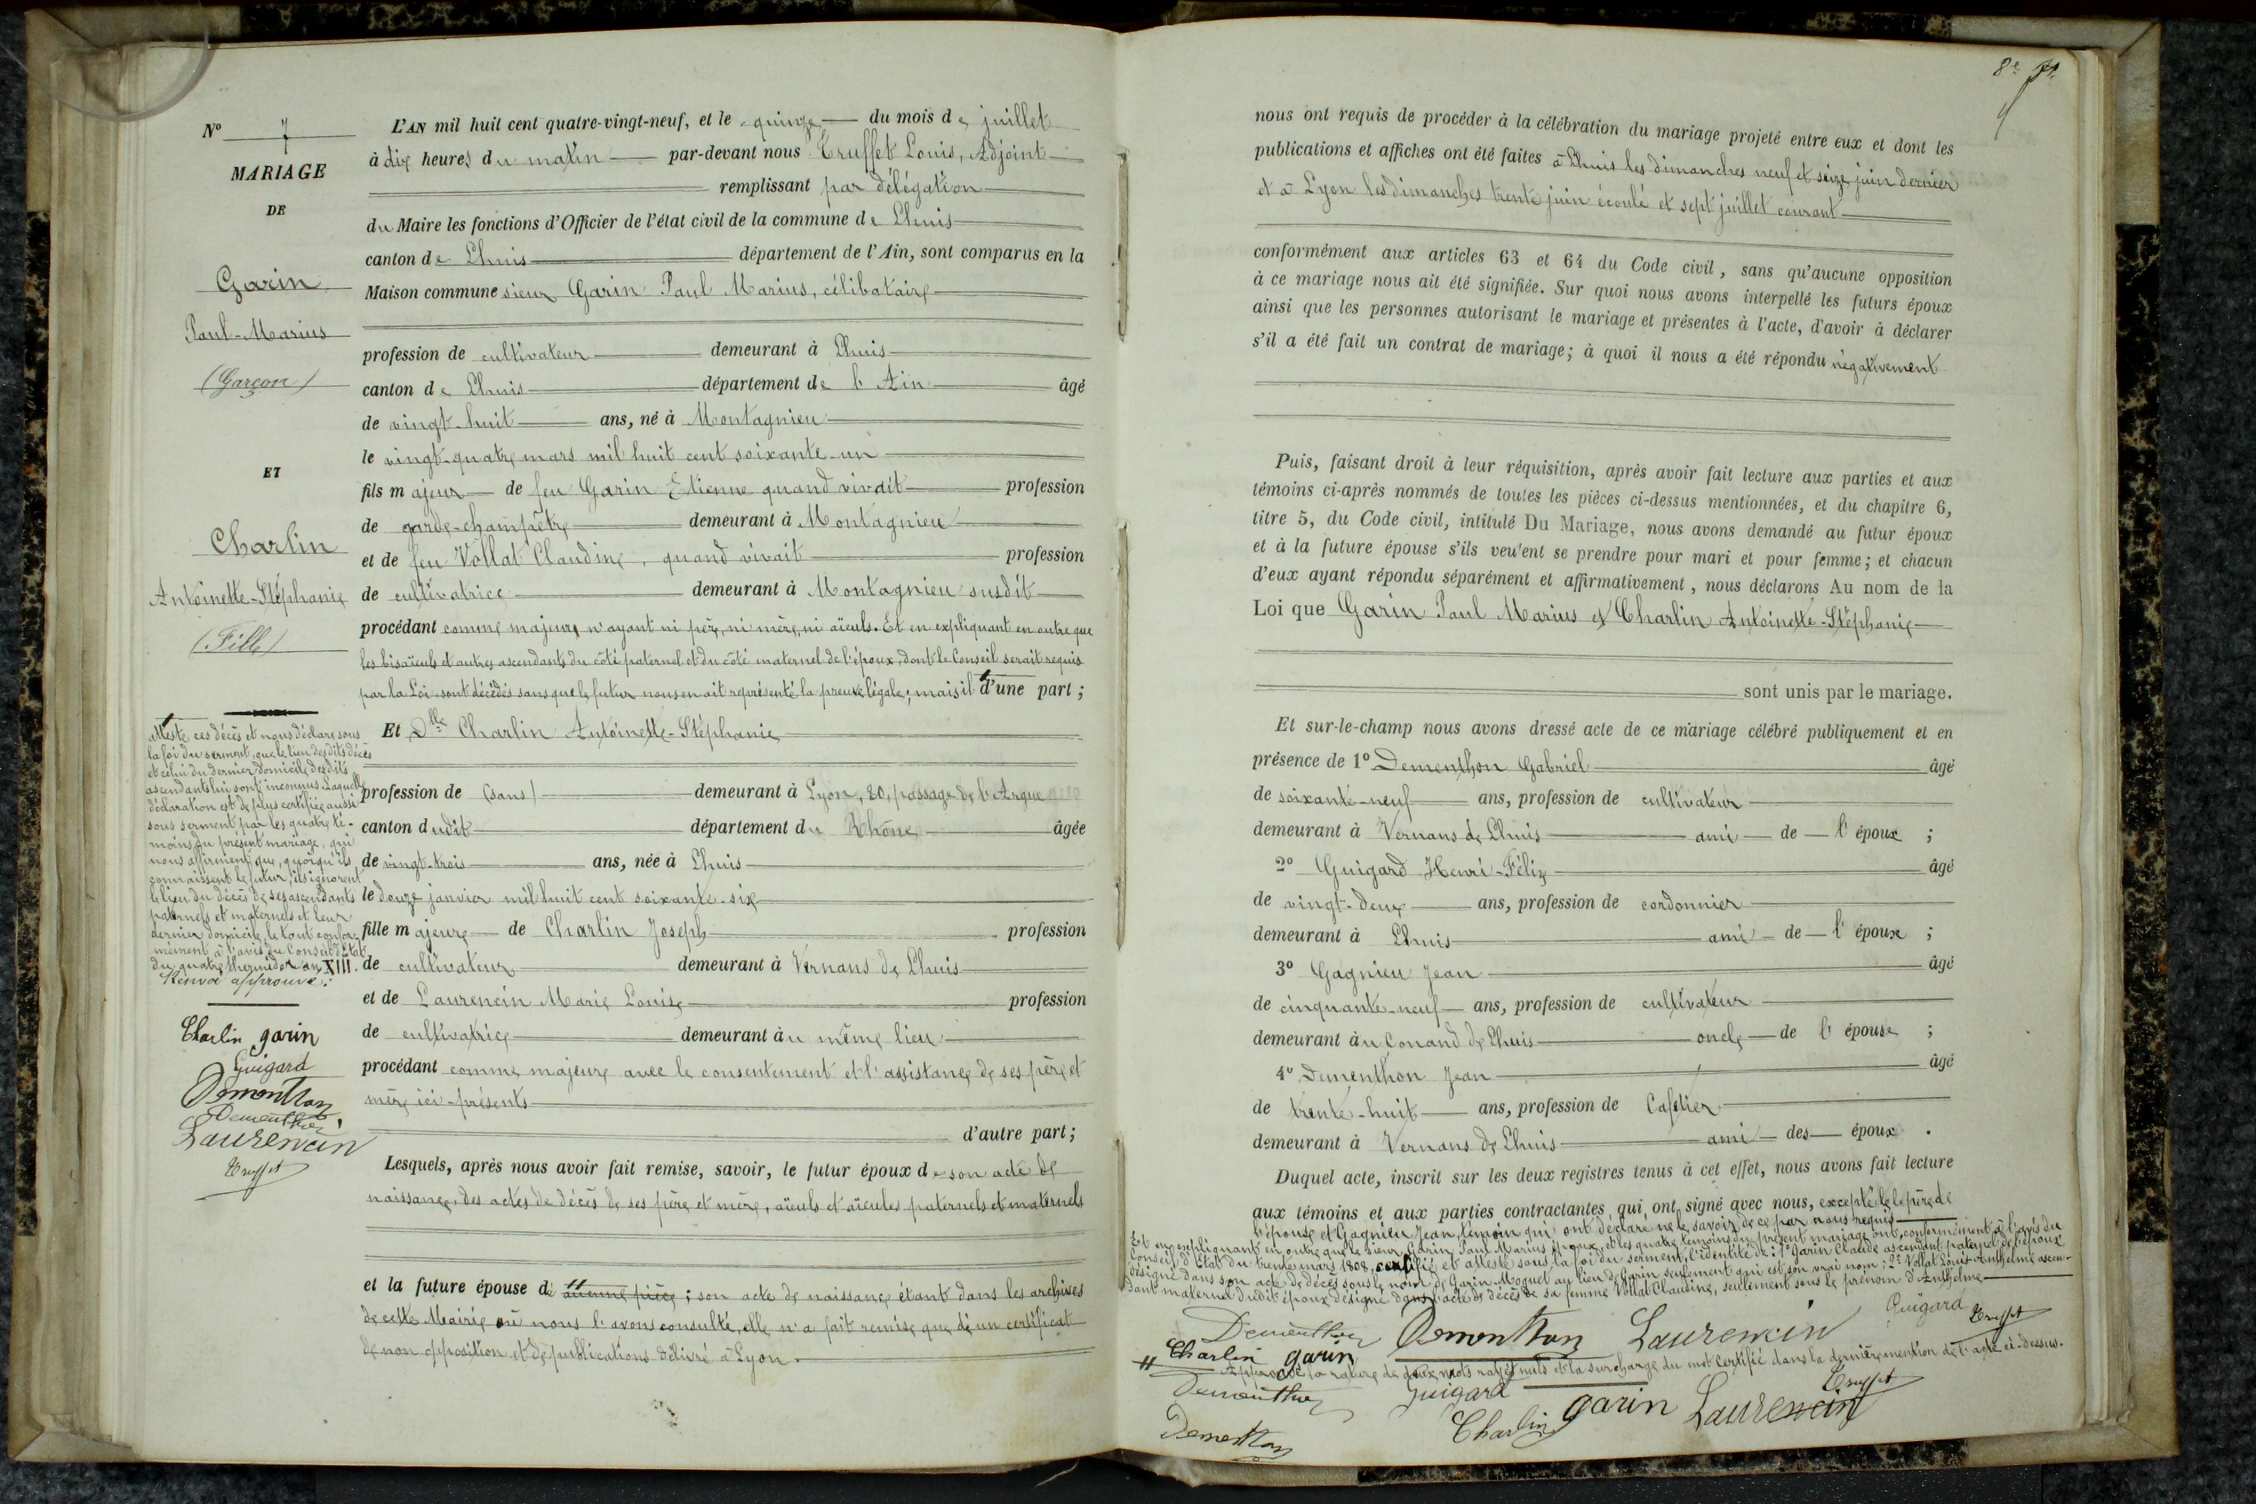 N° 7
MARIAGE
DE
Garin
Paul-Marius
(Garçon)
ET
Charlin
Antoinette-Stéphanie
(Fille)
atteste ces décès et nous déclare sous
la foi du serment, que le lieu desdits décès
et celui du dernier domicile desdits
ascendants lui sont inconnus. Laquelle
déclaration est de plus certifiée aussi
sous serment par les quatre té-
moins du présent mariage, qui
nous affirment que, quoiqu'ils
connaissent le futur, ils ignorent
le lieu du décès de ses ascendants
paternels et maternels et leur
dernier domicile, le tout confor-
mément à l'avis du Conseil d'Etat
du quatre thermidor an XIII.
Renvoi approuvé:
Charlin garin
Guigard
Dementhon
Dementhon
Laurencin
Truffet
L'AN mil huit cent quatre-vingt-neuf, et le quinze du mois de juillet
à dix heures du matin par-devant nous Truffet Louis, Adjoint
remplissant par délégation
du Maire les fonctions d'Officier de l'état civil de la commune de Lhuis
canton de Lhuis département de l'Ain, sont comparus en la
Maison commune sieur Garin Paul Marius, célibataire
profession de cultivateur demeurant à Lhuis
canton de Lhuis département de l'Ain âgé
de vingt-huit ans, né à Montagnieu
le vingt-quatre mars mil huit cent soixante-un
fils majeur de feu Garin Etienne quand vivait profession
de garde-champêtre demeurant à Montagnieu
et de feu Vollat Claudine, quand vivait profession
de cultivatrice demeurant à Montagnieu susdit
procédant comme majeur, n'ayant ni père, ni mère, ni aïeuls. Et en expliquant en outre que
les bisaïeuls et autres ascendants du côté paternel et du côté maternel de l'époux, dont le Conseil serait requis
par la Loi sont décédés sans que le futur nous en ait représenté la preuve légale; mais il d'une part;
Et Dlle Charlin Antoinette-Stéphanie
profession de (sans) demeurant à Lyon, 20, passage de l'Argue
canton dudit département du Rhône âgée
de vingt-trois ans, née à Lhuis
le douze janvier mil huit cent soixante-six
fille majeure de Charlin Joseph profession
de cultivateur demeurant à Vernans de Lhuis
et de Laurencin Marie Louise profession
de cultivatrice demeurant au même lieu
procédant comme majeure avec le consentement et l'assistance de ses père et
mère ici-présents
d'autre part;
Lesquels, après nous avoir fait remise, savoir, le futur époux de son acte de
naissance, des actes de décès de ses père et mère, aïeuls et aïeules paternels et maternels
et la future épouse de aucune pièce; son acte de naissance étant dans les archives
de cette Mairie où nous l'avons consulté, elle n'a fait remise que de un certificat
de non opposition et de publications délivré à Lyon.
8e
nous ont requis de procéder à la célébration du mariage projeté entre eux et dont les
publications et affiches ont été faites à Lhuis les dimanches neuf et seize juin dernier
et à Lyon les dimanches trente juin écoulé et sept juillet courant
conformément aux articles 63 et 64 du Code civil, sans qu'aucune opposition
à ce mariage nous ait été signifiée. Sur quoi nous avons interpellé les futurs époux
ainsi que les personnes autorisant le mariage et présentes à l'acte, d'avoir à déclarer
s'il a été fait un contrat de mariage; à quoi il nous a été répondu négativement
Puis, faisant droit à leur réquisition, après avoir fait lecture aux parties et aux
témoins ci-après nommés de toutes les pièces ci-dessus mentionnées, et du chapitre 6,
titre 5, du Code civil, intitulé Du Mariage, nous avons demandé au futur époux
et à la future épouse s'ils veulent se prendre pour mari et pour femme; et chacun
d'eux ayant répondu séparément et affirmativement, nous déclarons Au nom de la
Loi que Garin Paul Marius et Charlin Antoinette-Stéphanie
sont unis par le mariage.
Et sur-le-champ nous avons dressé acte de ce mariage célébré publiquement et en
présence de 1° Dementhon Gabriel âgé
de soixante-neuf ans, profession de cultivateur
demeurant à Vernans de Lhuis ami de l'époux;
2° Guigard Henri-Félix âgé
de vingt-deux ans, profession de cordonnier
demeurant à Lhuis ami de l'époux;
3° Gagnieu Jean âgé
de cinquante-neuf ans, profession de cultivateur
demeurant au Conand de Lhuis oncle de l'épouse;
4° Dementhon Jean âgé
de trente-huit ans, profession de Cafetier
demeurant à Vernans de Lhuis ami des époux.
Duquel acte, inscrit sur les deux registres tenus à cet effet, nous avons fait lecture
aux témoins et aux parties contractantes, qui ont signé avec nous, excepté le père de
l'épouse et Gagnieu Jean, témoin qui ont déclaré ne le savoir de ce par nous requis
Et en expliquant en outre que le sieur Garin Paul Marius époux, et les quatre témoins du présent mariage ont, conformément à l'avis du
Conseil d'Etat du trente mars 1808, certifié et attesté sous la foi du serment, l'identité de: 1° Garin Claude ascendant paternel de l'époux
désigné dans son acte de décès sous le nom de Garin-Moquet au lieu de Garin seulement qui est son vrai nom; 2° Vollat Louis-Anthelme ascen-
dant maternel dudit époux désigné dans l'acte de décès de sa femme Vollat Claudine, seulement sous le prénom d'Anthelme
Dementhon Dementhon Laurencin Guigard Truffet
Charlin garin
Approuvé la rature de deux mots rayés nuls et la surcharge du mot certifié dans la dernière mention de l'acte ci-dessus.
Dementhon Guigard garin Laurencin Truffet
Dementhon Charlin